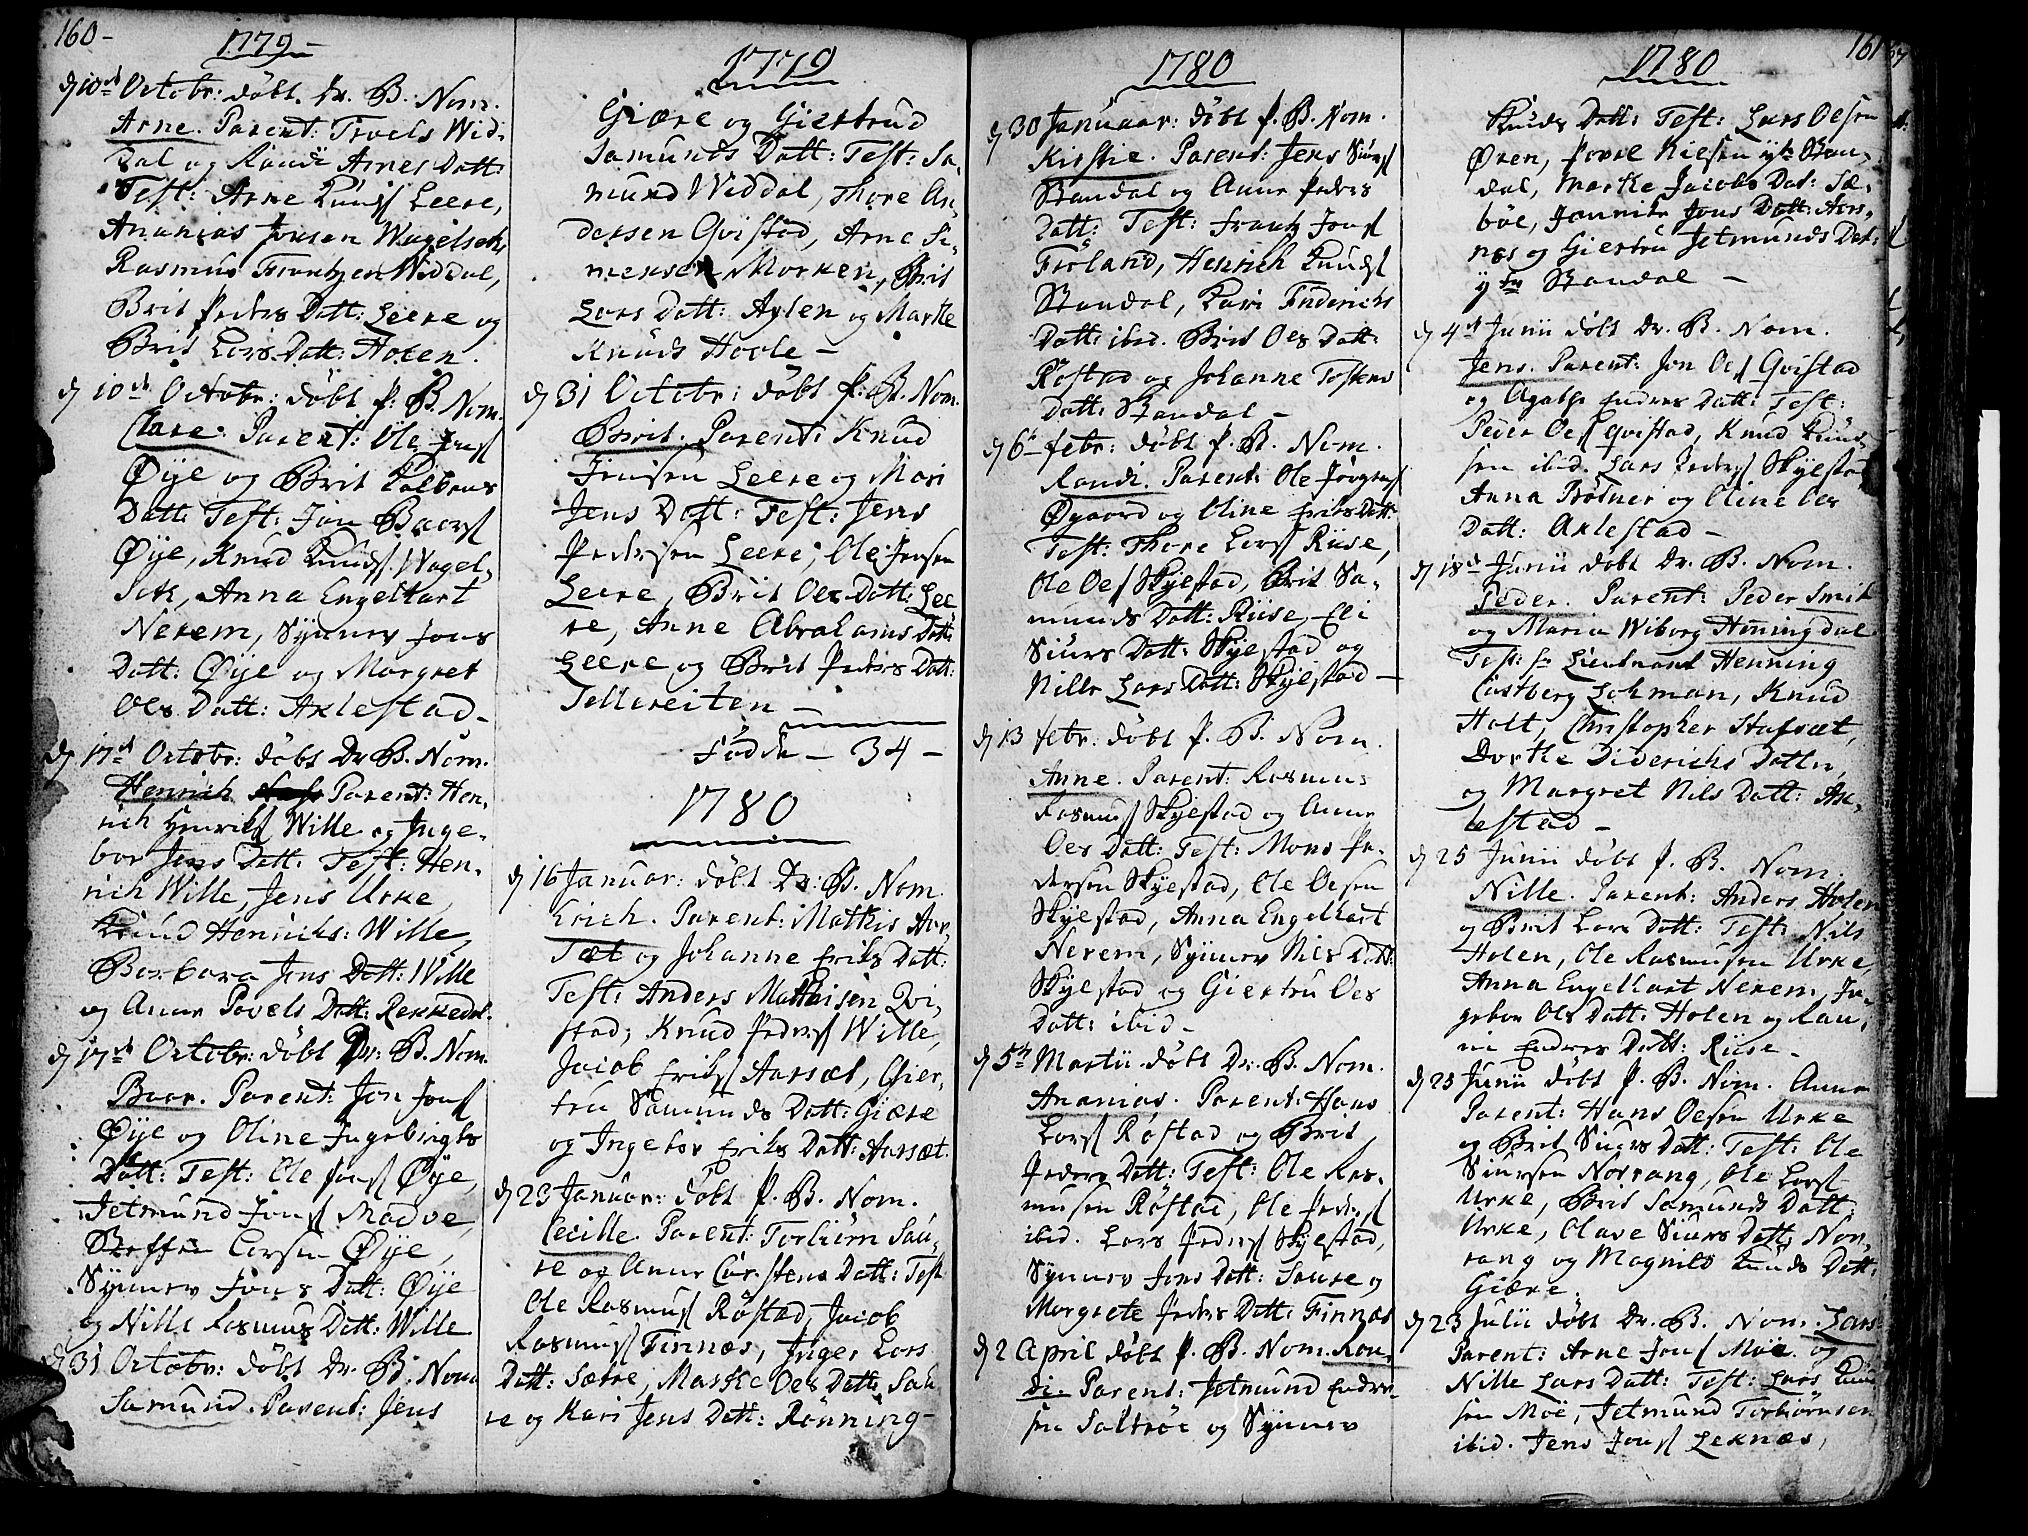 160-
1779-
d 10de Octobr: døbt Dr. B. Nom.
Arne. Parent: Troels Wid-
dal og Randi Arnes Datt:
Test: Arne Knuds Leere,
Ananias Jensen Wagelsek,
Rasmus Frantzen Widdal,
Brit Peders Datt: Leere og
Brit Lars Datt: Holen.
d 10de Octobr: døbt P. B. Nom.
Clare. Parent: Ole Jons
Øye og Brit Colbens
Datt: Test: Jon Baars
Øye, Knud Knuds. Wagel-
sek, Anna Engelkart
Nerem, Synnev Jons
Datt: Øye og Margret
Oles Datt: Axlestad-
d 17de Octobr: døbt Dr. B. Nom.
Henrich Parent: Hen-
rich Henriks Wille og Inge-
bor Jens Datt: Test: Hen-
rich Wille, Jens Urke,
Knud Henrichs: Wille,
Barbara Jens Datt: Wille
og Anne Povels Datt: Rekkedal.
d 17de Octobr: døbt Dr. B. Nom.
Baar. Parent: Jon Jons
Øye og Oline Ingebrigts
Datt: Test: Ole Jons Øye,
Jetmund Jons Madve,
Steffen Larsen Øye,
Synnev Jons Datt: Øye
og Nille Rasmus Datt: Wille
d 31 Octobr: døbt Dr. B. Nom
Samund. Parent: Jens
1779
Giære og Giertrud
Samunds Datt: Test: Sa-
mund Widdal, Thore An-
dersen Qvistad, Arne Si-
mensen Morken, Brit
Lars Datt: Aylen og Marte
Knuds Hoole -
d 31 Octobr: døbt P. B. Nom.
Brit. Parent: Knud
Jensen Leere og Mari
Jens Datt: Test: Jens
Pedersen Leere, Ole Jensen
Leere, Brit Oles Datt: Lee
re, Anne Abrahams Datt:
Leere og Brit Peders Datt:
Tellereiten -
Fødde - 34 -
1780
d 16 Januar: døbt Dr: B. Nom.
Erich. Parent: Mathis Aar-
sæt og Johanne Eriks Datt:
Test: Anders Mathisen Qvi-
stad, Knud Peders Wille,
Jacob Eriks Aarsæt, Gier-
tru Samunds Datt: Giære
og Ingebor Eriks Datt: Aarsæt.
d 23 Januar: døbt P. B. Nom.
Cecille. Parent: Torbiørn Sau-
re og Anne Carstens Datt: Test
Ole Rasmus Røstad, Jacob
Rasmus Finnæs, Inger Lars
Datt: Sætre, Marthe Oles Datt: Sau
re og Kari Jens Datt: Rønning-
1780
d 30 Januar: døbt P. B. Nom.
Kirstie. Parent: Jens Siurs
Standal og Anne Peders
Datt: Test: Frantz Jons
Fioland, Henrich Knuds
Standal, Kari Friderichs
Datt: ibid. Brit Oles Datt:
Røstad og Johanne Tostens
Datt: Standal -
d 6te febr: døbt P. B. Nom.
Randi. Parent: Ole Jørgens
Øgaard og Oline Eriks Datt:
Test: Thore Lars Riise,
Ole Oles Skyestad, Brit Sa-
munds Datt: Riise, Eli
Siurs Datt: Skyestad og
Nille Lars Datt: Skyestad -
d 13 febr: døbt P. B. Nom.
Anne. Parent: Rasmus
Rasmus Skyestad og Anne
Oles Datt: Test: Mons Pe-
dersen Skyestad, Ole Olesen
Skyestad, Anna Engelkart
Nerem, Synnev Nils Datt:
Skyestad og Giertru Oles
Datt: ibid -
d 5te Martii døbt Dr. B. Nom.
Ananias. Parent: Hans
Lars Røstad og Brit
Peders Datt: Test: Ole Ras-
musen Røstad, Ole Peders
ibid. Lars Peders Skyestad,
Synnev Jons Datt: Saure og
Margrete Peders Datt: Finnæs
d 2 April døbt P. B. Nom. Ran-
di- Parent: Jetmund Endre-
sen Saltrøe og Synnev
1780
161
Knuds Datt: Test: Lars Olesen
Øren, Povel Nielsen ytre Stan-
dal, Marte Jacobs Dat: Sæ-
bøe, Jannike Jons Datt: Aars-
næs og Giertru Jetmunds Dat:
ytre Standal -
d 4de Junii døbt Dr. B. Nom.
Jens. Parent: Jon Oles Qvistad
og Agathe Endres Datt: Test:
Peder Oles Qvistad, Knud Knud-
sen ibid. Lars Peders Skyestad
Anna Brodner og Oline Oles
Datt: Axlestad -
d 18de Junii døbt Dr. B. Nom.
Peder. Parent: Peder Smit
og Maria Wiborg Henningdal
Test: Hr Lieutnant Henning
Castberg Lohman, Knud
Holt, Christopher Hafsæt,
Dorthe Diderichs Datter,
og Margret Nils Datt: Ax-
lestad -
d 25 Junii døbt P. B. Nom.
Nille. Parent: Anders Holen
og Brit Lars Datt: Test: Nils
Holen, Ole Rasmusen Urke,
Anna Engelkart Nerem, In-
gebor Ols Datt: Holen og Ran-
ni Endres Datt: Riise -
d 25 Junii døbt P. B. Nom. Anne
Parent: Hans Olesen Urke
og Brit Siurs Datt: Test: Ole
Siursen Norrang, Ole Lars
Urke, Brit Samunds Datt:
Urke, Olave Siurs Datt: Nor-
rang og Magnild Knuds Datt:
Giære.
d 23 Julii døbt Dr. B. Nom. Lars
Parent: Arne Jons Møe og
Nille Lars Datt: Test: Lars Knud
sen Møe, Jetmund Torbiørnsen
ibid. Jens Jons Leknæs,